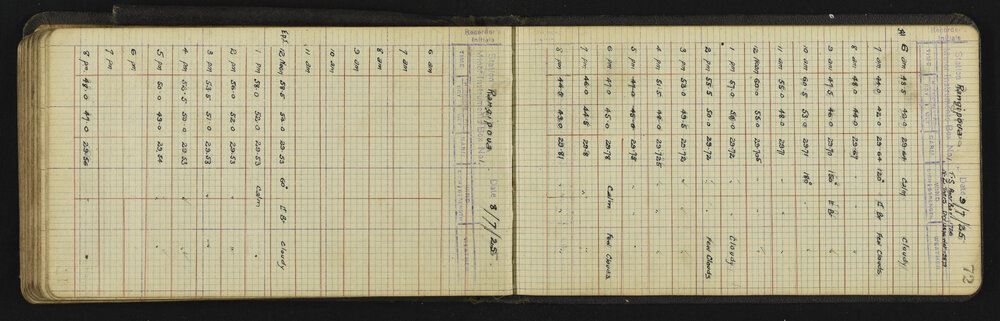 72
Recorder's Initials
Station Rangipoua Date 9/7/25
Motor Instruments Box No.
TIME BAR. WIND DIRECTION WEATHER
6 am 48.5 40.0 29.64 Calm Cloudy
7 am 48.0 42.0 29.64 120° Lt Br Few Clouds
8 am 48.0 44.0 29.67 " " "
9 am 47.5 46.0 29.70 150° Lt Br "
10 am 60.5 53.0 29.71 180° " "
11 am 55.0 48.0 29.71 " "
12 Noon 60.0 55.0 29.705 " "
1 pm 57.0 58.0 29.72 " " Cloudy
2 pm 55.5 50.0 29.72 " " Few Clouds
3 pm 53.0 49.5 29.72 " "
4 pm 51.5 44.0 29.725 " "
5 pm 49.0 45.0 29.75 " "
6 pm 47.0 45.0 29.78 Calm Few Clouds
7 pm 46.0 44.5 29.8 " "
8 pm 44.5 43.0 29.81 " "
Recorder's Initials
Station Rangipoua Date 8/7/25
Motor Instruments Box No.
TIME BAR. WIND DIRECTION WEATHER
6 am
7 am
8 am
9 am
10 am
11 am
12 Noon 58.5 52.0 29.53 60° Lt Br Cloudy
1 pm 58.0 52.0 29.53 Calm "
2 pm 56.0 52.0 29.53 " "
3 pm 53.5 51.0 29.53 " "
4 pm 52.5 50.0 29.53 " "
5 pm 50.0 49.0 29.54 " "
6 pm
7 pm
8 pm 48.0 47.0 29.56 " "